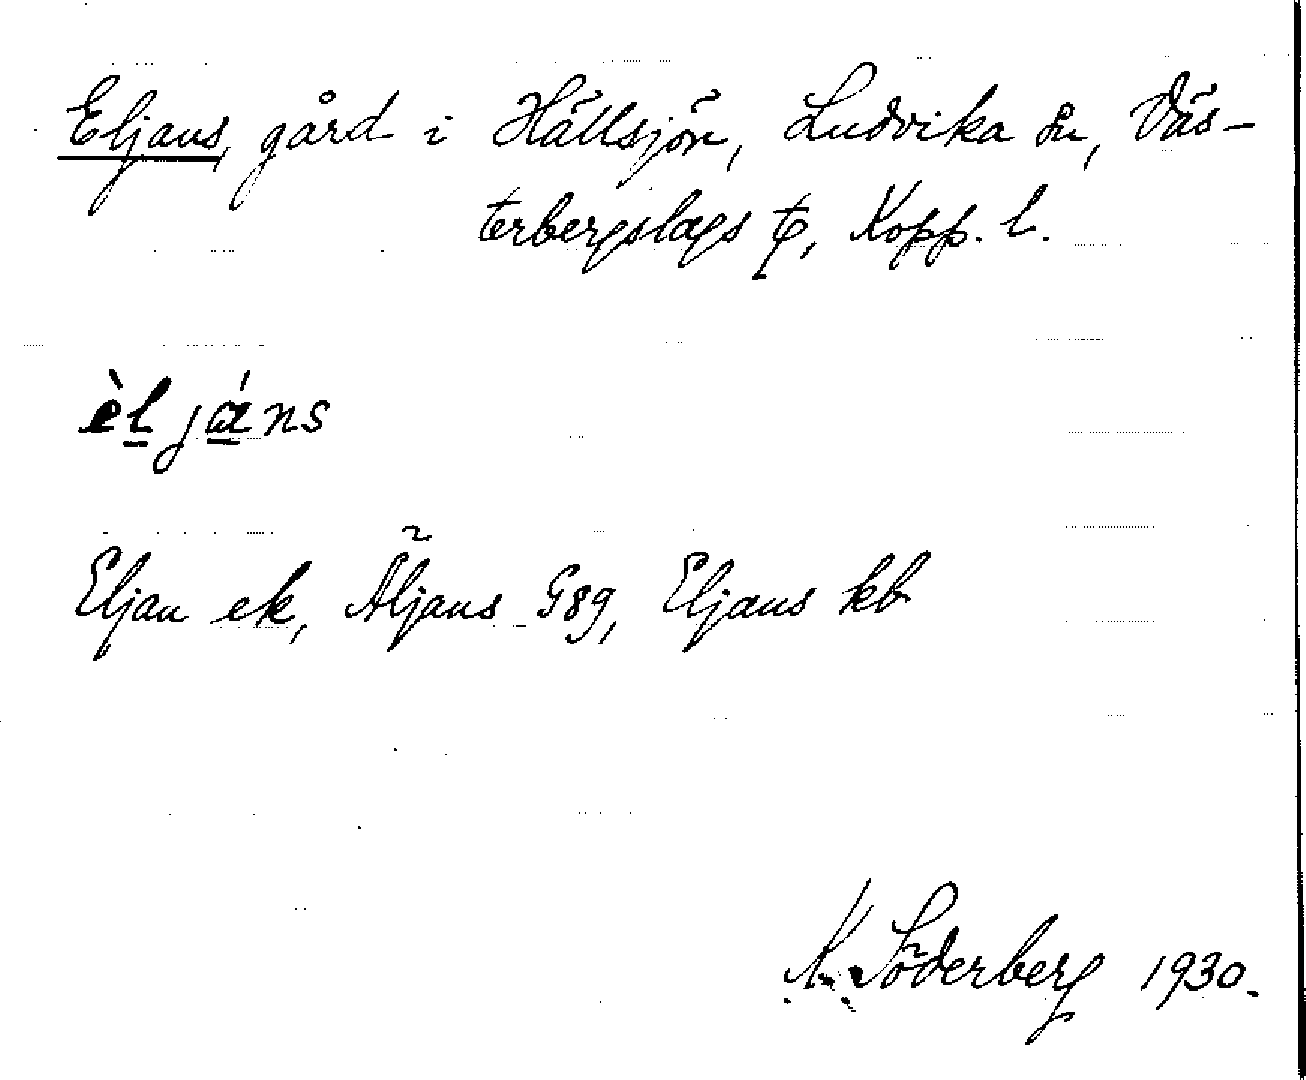 Eljans, gård i Hällsjön, Ludvika sn, Väs-
terbergslags tg, Kopp. l.
èl jáns
Eljan ek, Äljans G89, Eljans kb
K. Söderberg 1930.